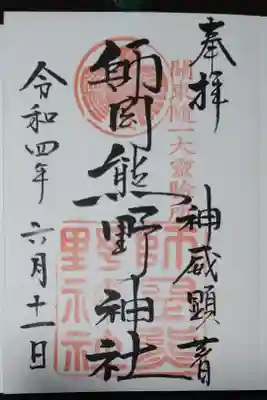 奉拝
神威顕著
関東随一大霊験所
師岡熊野神社
令和四年 六月十一日